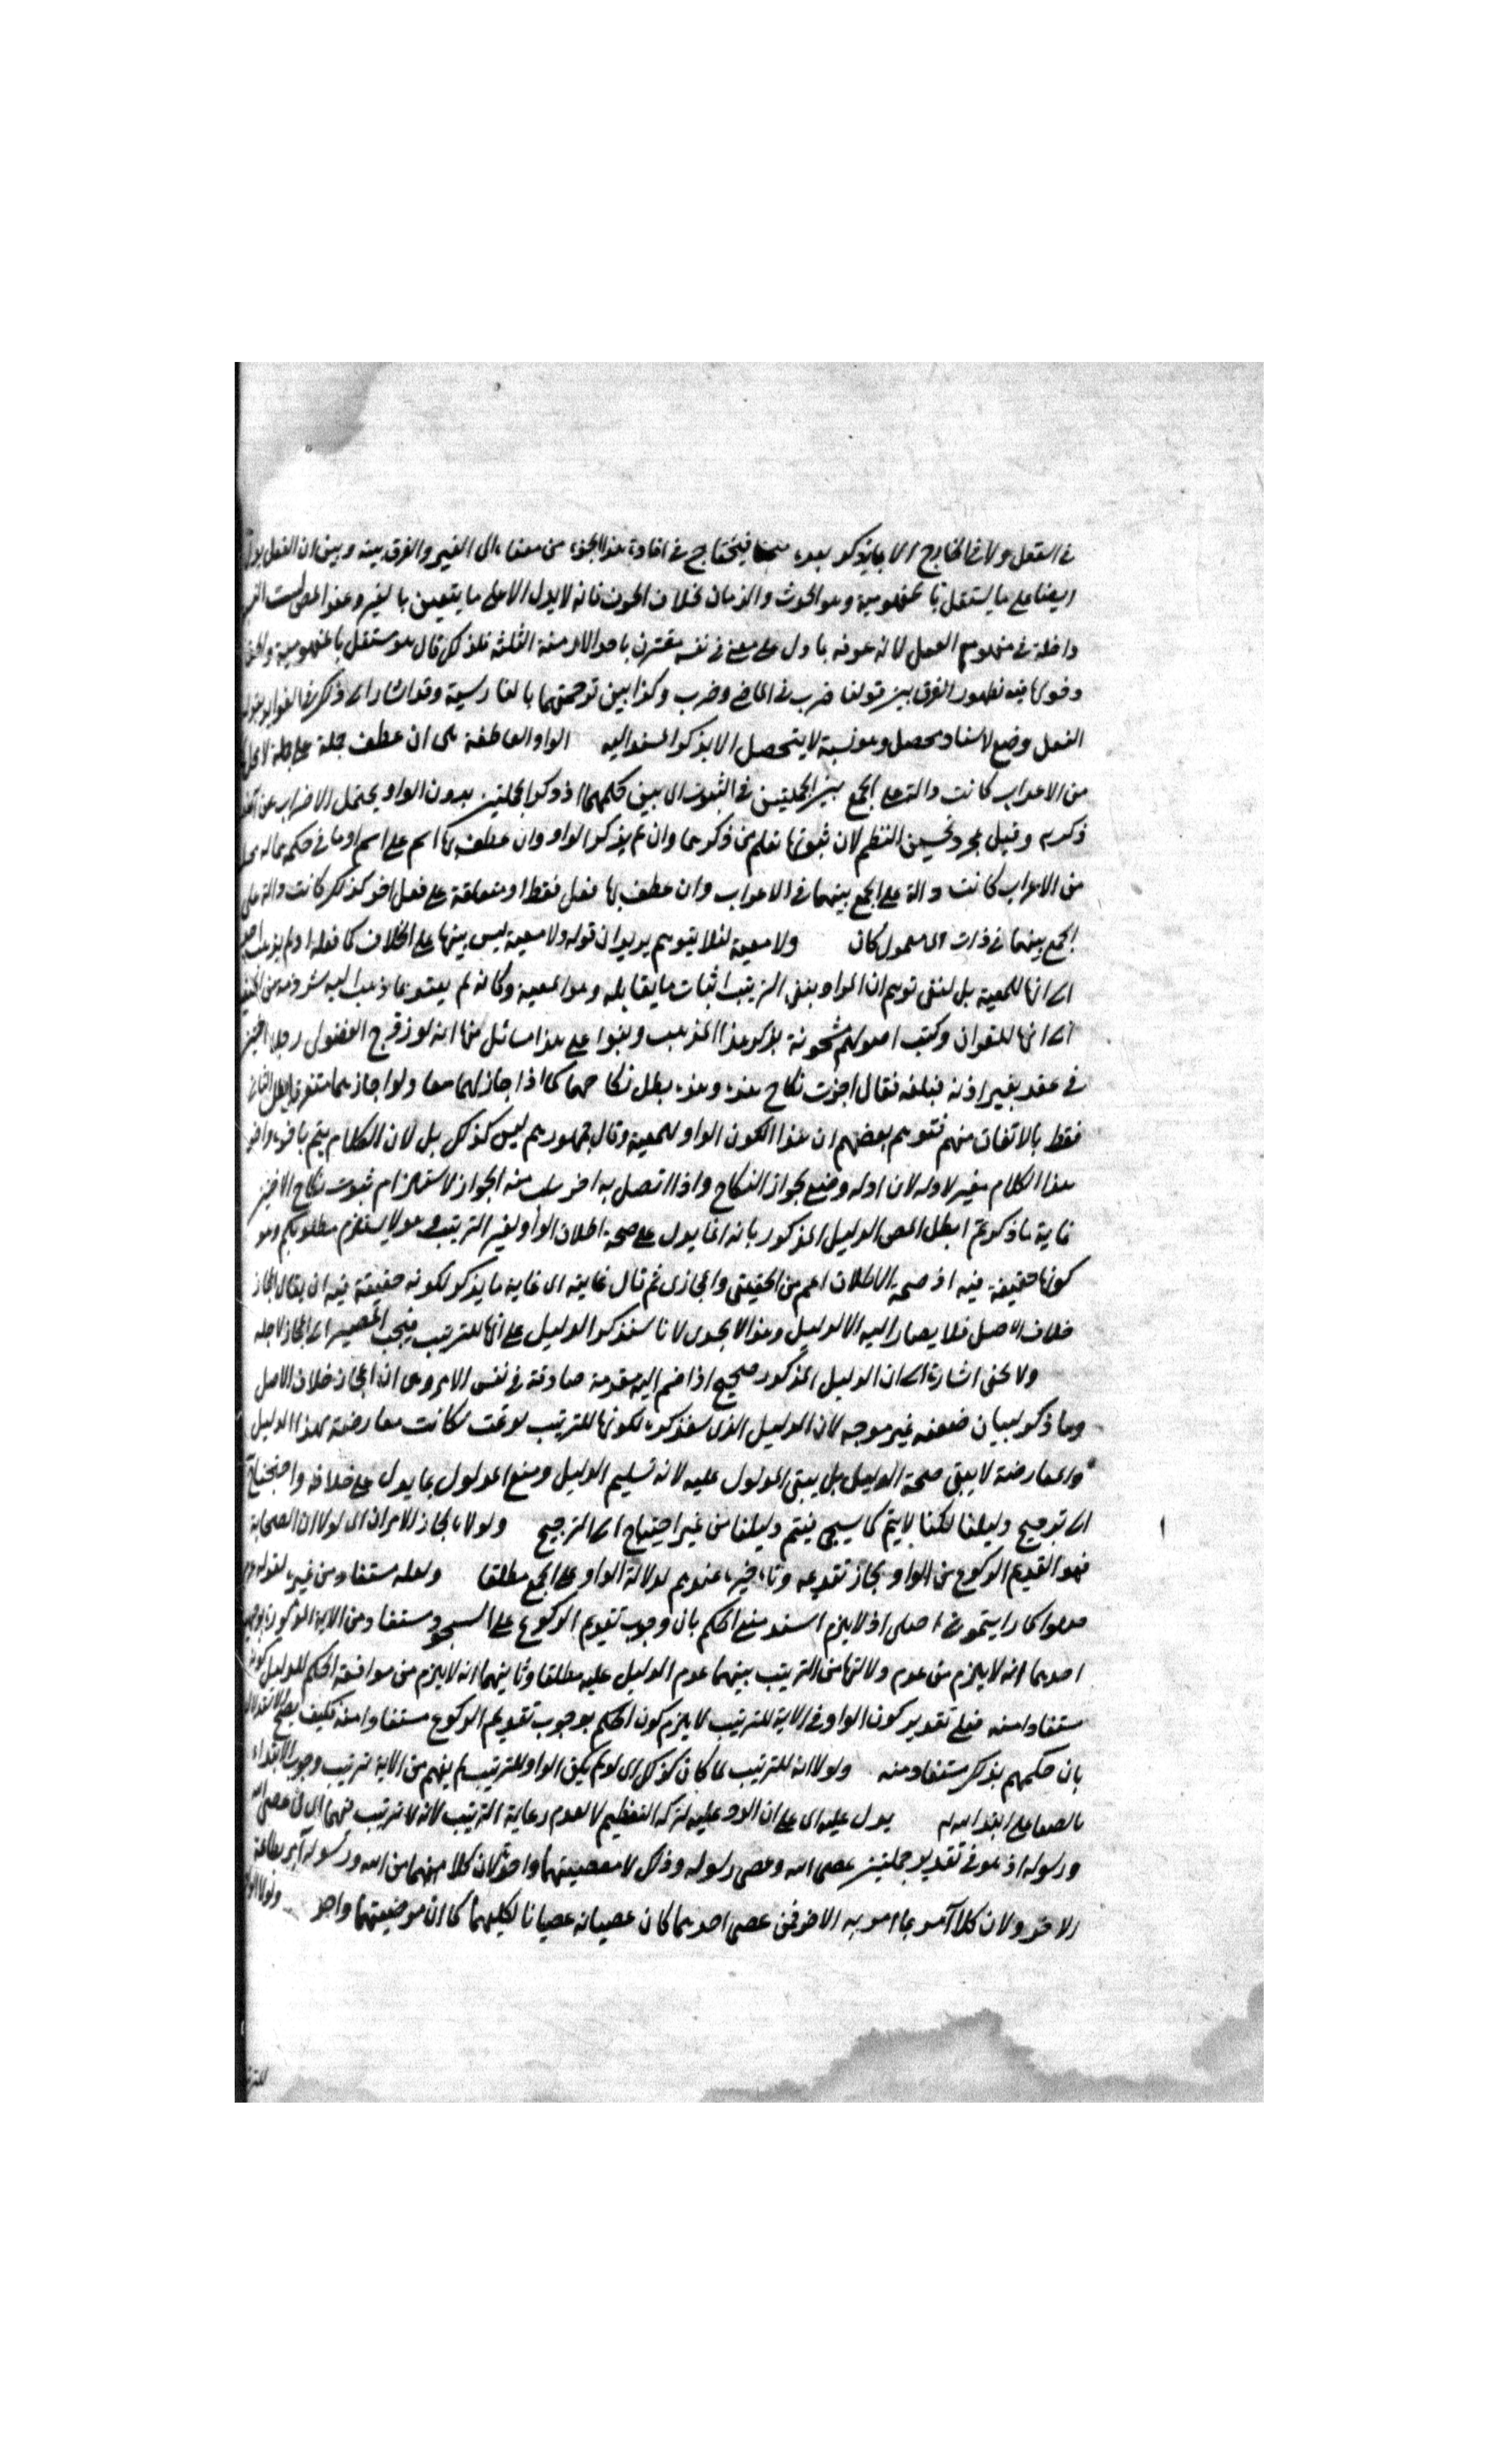 في التعقل ولا في الخارج الا بما يذكر بعده فيحتاج في افادة هذا الجزء من معناه الى الغير والفرق بينه وبين ان الفعل يدل
ايضا على ما يستقل بالمفهومية وهو الحدث والزمان بخلاف الحرف فانه لا يدل الا على ما يتعين بالغير وعند المص ليست النسبة
داخلة في مفهوم الفعل لانه عرفه بما دل على معنى في نفسه مقترن باحد الازمنة الثلثة فلذلك قال هو مستقل بالمفهومية والحق
دخولها فيه لظهور الفرق بين قولنا ضرب في الماضي وضرب وكذا بين ترجمتهما بالفارسية وقد اشار الى ذلك في الفوايد بقوله
الفعل وضع لاسناد محصل وهو نسبة لا يتحصل الا بذكر المسند اليه الواو العاطفة هى ان عطف جملة على جملة لا محل
من الاعراب كانت دالة على الجمع بين الجملتين في الثبوت اى بين حكمهما اذ ذكر الجملتين بدون الواو يحتمل الاضراب عن
ذكره وقيل مجرد تحسين النظم لان ثبوتها تعلم من ذكرهما وان لم يذكر الواو وان عطف بها اسم على اسم او ما في حكمه مما له محل
من الاعراب كانت دالة على الجمع بينهما في الاعراب وان عطف بها فعل فقط او متعلقه على فعل اخر كذلك كانت دالة على
الجمع بينهما في ذات اى معمول كان ولا معية لئلا يتوهم يريد ان قوله ولا معية ليس بينها على الخلاف كما فعله اذ لم يذهب احد
الى انها للمعية بل لنفى توهم ان المراد بنفى الترتيب اثبات ما يقابله وهو المعية وكانه لم يعتد بما ذهب اليه شرذمة من الحنفية
الى انها للقران وكتب اصولهم مشحونة بذكر هذا المذهب وبنوا على هذا مسائل منها انه لو زوج الفضولى رجلا اختين
في عقد بغير اذنه فبلغه فقال اجزت نكاح هذه وهذه بطل نكاحهما كما اذا اجازهما معا ولو اجازهما متفرقا بطل الثانى
فقط بالاتفاق منهم فتوهم بعضهم ان هذا لكون الواو للمعية وقال جمهورهم ليس كذلك بل لان الكلام يتم باخره واخر
هذا الكلام مغير لاوله لان اوله وضع لجواز النكاح واذا اتصل به اخر سلب منه الجواز لاستلزام ثبوت نكاح الاختين
غاية ما ذكرتم ابطل المص الدليل المذكور بانه انما يدل على صحة اطلاق الواو لغير الترتيب وهو لا يستلزم مطلوبكم وهو
كونها حقيقة فيه اذ صحة الاطلاق اعم من الحقيقى والمجازى ثم قال غايته اى غاية ما يذكر لكونه حقيقة فيه ان يقال المجاز
خلاف الاصل فلا يصار اليه الا لدليل وهذا لا يجدى لانا سنذكر الدليل على انها للترتيب فيجب المصير الى المجاز لاجله
ولا يخفى اشارة الى ان الدليل المذكور صحيح اذا ضم اليه مقدمة صادقة في نفس الامر وهى ان المجاز خلاف الاصل
وما ذكر لبيان ضعفه غير موجه لان الدليل الذى سنذكره لكونها للترتيب لو تمت لكانت معارضة لهذا الدليل
والمعارضة لا يبقى صحة الدليل بل يبقى المدلول عليه لانه تسليم الدليل ومنع المدلول بما يدل على خلافه واحتجنا
الى ترجيح دليلنا لكنا لا يتم كما سيجى فيتم دليلنا من غير احتياج الى الترجيح ولولاه لجاز الامران اى لولا ان الصحابة
فهوا تقديم الركوع من الواو لجاز تقديمه وتاخيره عندهم لدلالة الواو على الجمع مطلقا ولعله مستفاد من غيره لقوله
صلوا كما رايتمونى اصلى اذ لا يلزم اسند منع الحكم بان وجوب تقديم الركوع على السجود مستفاد من الاية المذكورة بوجهين
احدهما انه لا يلزم من عدم دلالتها من الترتيب بينهما عدم الدليل عليه مطلقا وثانيهما انه لا يلزم من موافقة الحكم للدليل كونه
مستفادا منه فعلى تقدير كون الواو في الاية للترتيب لا يلزم كون الحكم بوجوب تقديم الركوع مستفادا منه فكيف يصح الاستدلال
بان حكمهم بذلك مستفاد منه ولولا انه للترتيب لما كان كذلك اى لو لم يكن الواو للترتيب لم يفهم من الاية ترتيب وجوب الابتداء
بالصفا على ابتداء الله به يدل عليه اى على ان الرد عليه لتركه التعظيم لا لعدم رعاية الترتيب لانه لا ترتيب فيهما اى في عصى الله
ورسوله اذ هو في تقدير جملتين عصى الله وعصى رسوله وذلك لا معصيتهما واحد لان كلا منهما من الله ورسوله آمر بطاعة
الاخر ولان كلا آمر بما امر به الاخر فمن عصى احدهما كان عصيانه عصيانا لكليهما كما ان موضيتهما واحد ولولا
للتر